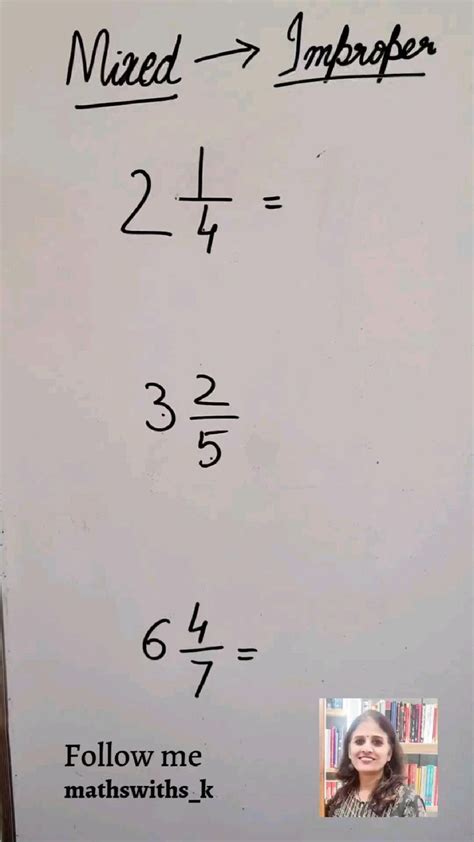 Mixed → Improper
2 1/4 =
3 2/5
6 4/7 =
Follow me
mathswiths_k